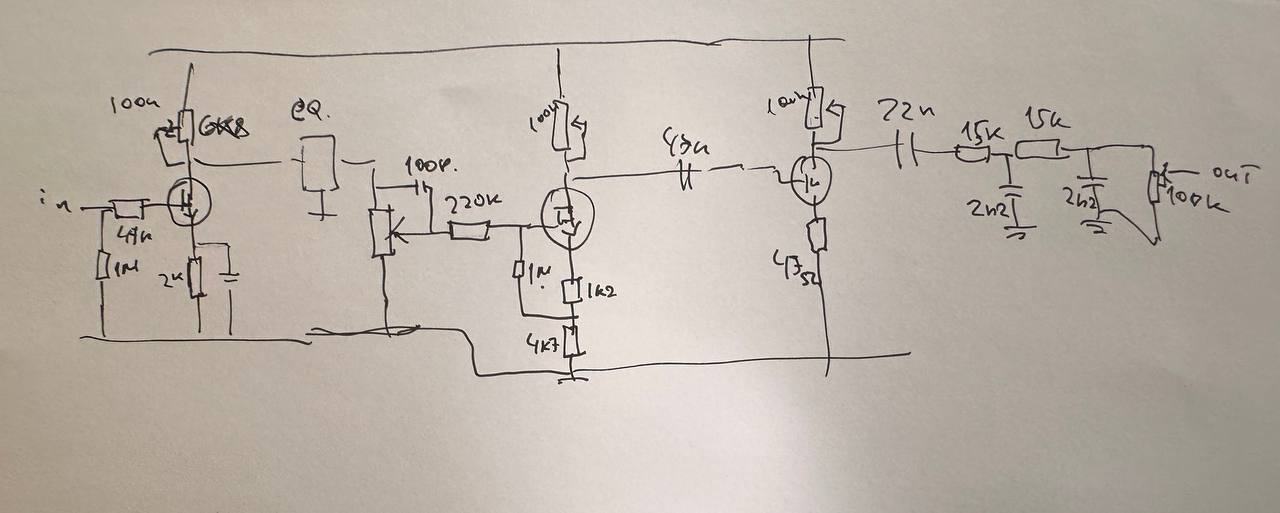 100k
EQ.
100k
100k
22n
15K
15K
100p.
220K
47n
in
47K
1M
2K
1M
1k2
4K7
47Ω
2n2
2n2
out
100k